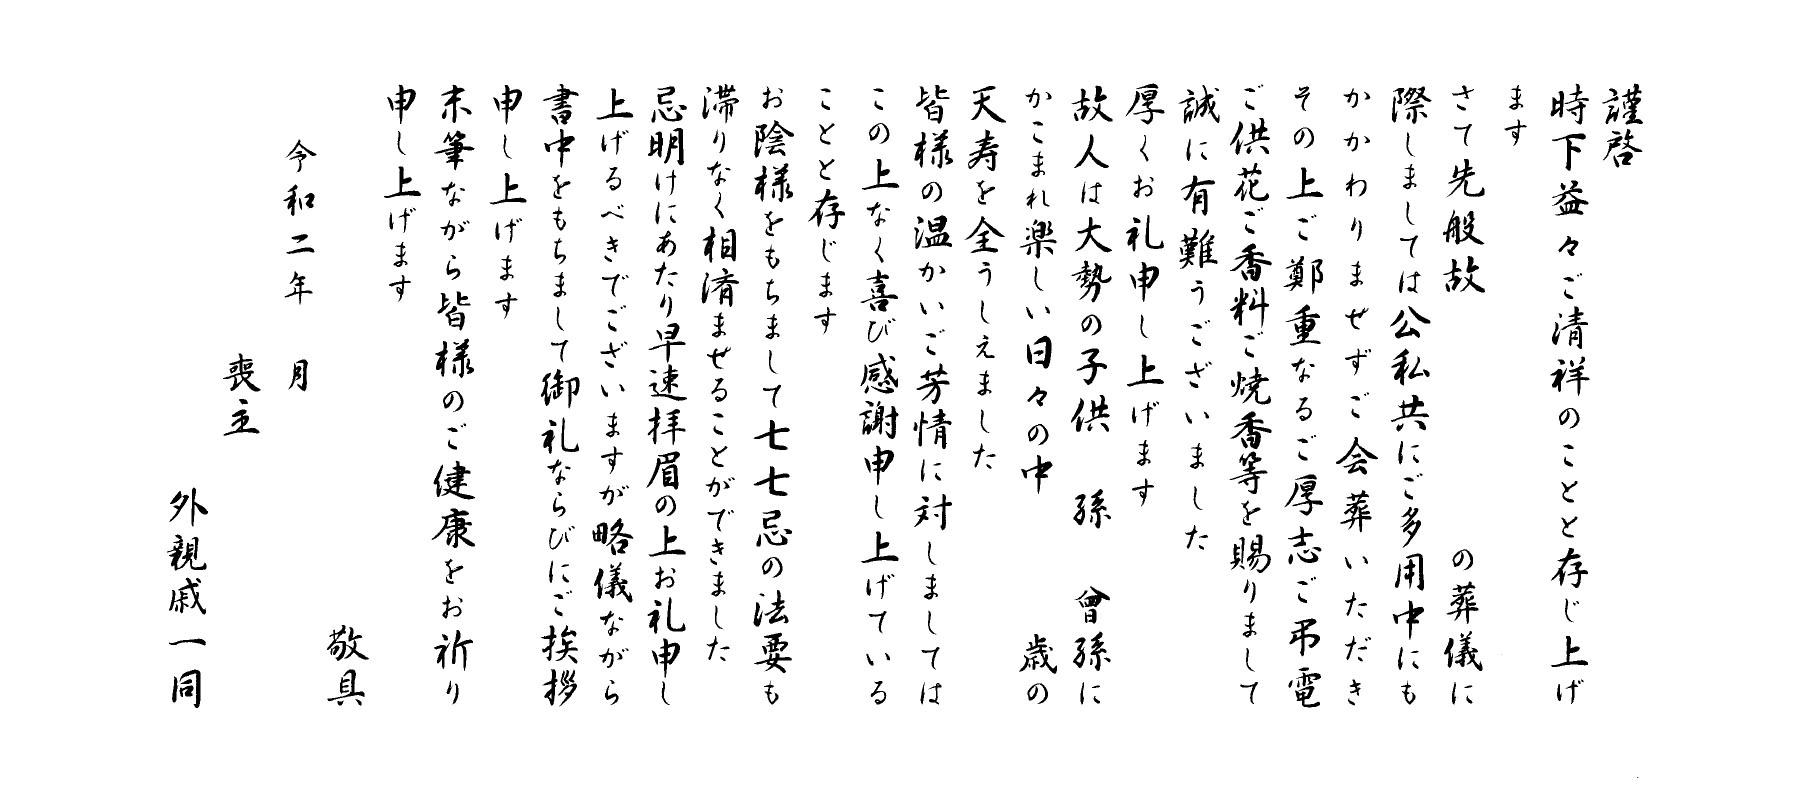 謹啓
時下益々ご清祥のことと存じ上げ
ます
さて先般故　　　　　の葬儀に
際しましては公私共にご多用中にも
かかわりませずご会葬いただき
その上ご鄭重なるご厚志ご弔電
ご供花ご香料ご焼香等を賜りまして
誠に有難うございました
厚くお礼申し上げます
故人は大勢の子供　孫　曾孫に
かこまれ楽しい日々の中　　　歳の
天寿を全うしえました
皆様の温かいご芳情に対しましては
この上なく喜び感謝申し上げている
ことと存じます
お陰様をもちまして七七忌の法要も
滞りなく相済ませることができました
忌明けにあたり早速拝眉の上お礼申し
上げるべきでございますが略儀ながら
書中をもちまして御礼ならびにご挨拶
申し上げます
末筆ながら皆様のご健康をお祈り
申し上げます
敬具
令和二年　月
喪主
外親戚一同